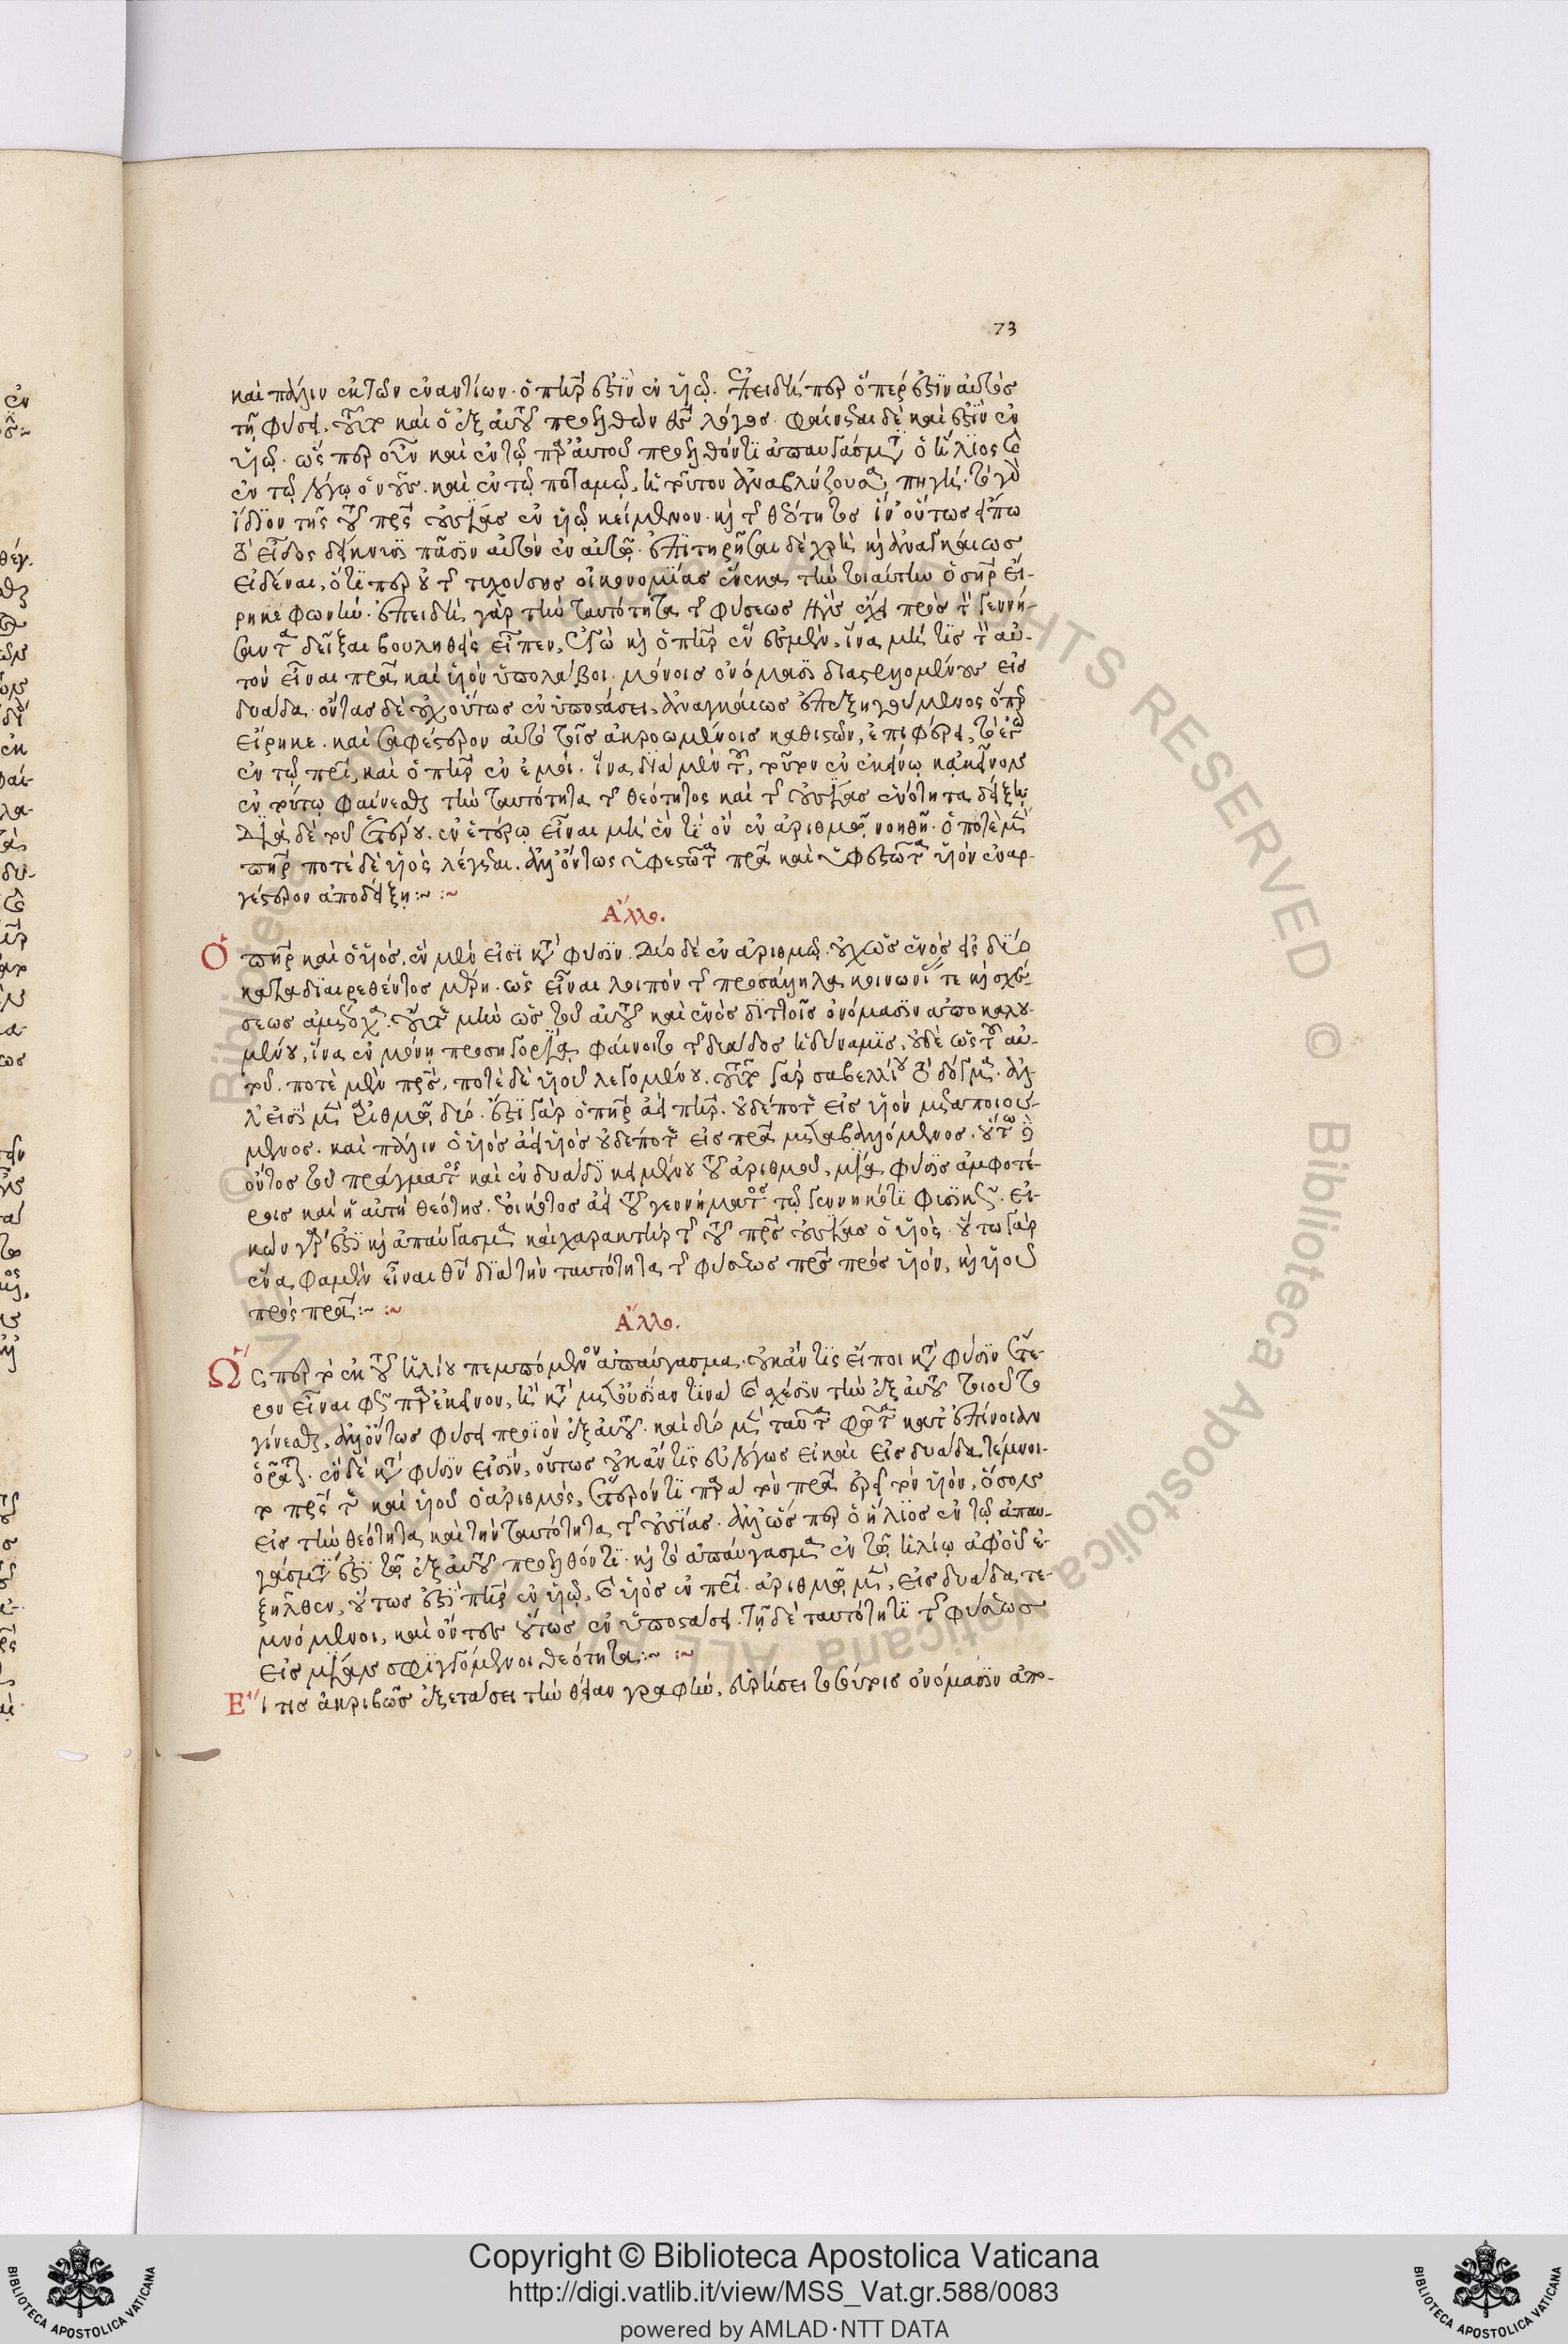 73
καὶ πάλιν ἐκ τῶν ἐναντίων. ὁ πατὴρ ἐστὶν ἐν υἱῷ. ἐπειδήπερ ὅπερ ἐστὶν αὐτὸς
τῇ φύσει, τοῦτο καὶ ὁ ἐξ αὐτοῦ προελθὼν θεὸς λόγος. φαίνεται δὲ καὶ ἐστὶν ἐν
υἱῷ. ὥσπερ οὖν καὶ ἐν τῷ παρ' αὐτοῦ προελθόντι ἀπαυγάσματι ὁ ἥλιος καὶ
ἐν τῷ λόγῳ ὁ νοῦς. καὶ ἐν τῷ ποταμῷ, ἡ τοῦτον ἀναβλύζουσα πηγή. τὸ γὰρ
ἴδιον τῆς τοῦ πατρὸς οὐσίας ἐν υἱῷ κείμενον. καὶ τῆς θεότητος ἵν' οὕτως εἴπω
τὸ εἶδος δείκνυσι πᾶσιν αὐτὸν ἐν αὐτῷ. ἐπιτηρῆσαι δὲ χρὴ καὶ ἀναγκαίως
εἰδέναι, ὅτι περ οὐ τῆς τυχούσης οἰκονομίας ἕνεκα τὴν τοιαύτην ὁ σωτὴρ εἴ-
ρηκε φωνήν. ἐπειδὴ γὰρ τὴν ταυτότητα τῆς φύσεως ἣν ἔχει πρὸς τὸν γεννή-
σαντα δεῖξαι βουληθεὶς εἶπεν, ἐγὼ καὶ ὁ πατὴρ ἕν ἐσμεν, ἵνα μή τις τὸν αὐ-
τὸν εἶναι πατέρα καὶ υἱὸν ὑπολάβοι. μόνοις ὀνόμασι διαστελλομένους εἰς
δυάδα. ὄντας δὲ οὐχ οὕτως ἐν ὑποστάσει, ἀναγκαίως ἐπεξηγούμενος ὅπερ
εἴρηκε. καὶ σαφέστερον αὐτὸ τοῖς ἀκροωμένοις καθιστῶν, ἐπιφέρει, τὸ ἐγὼ
ἐν τῷ πατρί, καὶ ὁ πατὴρ ἐν ἐμοί. ἵνα διὰ μὲν τοῦ, τοῦτον ἐν ἐκείνῳ κἀκεῖνον
ἐν τούτῳ φαίνεσθαι τὴν ταυτότητα τῆς θεότητος καὶ τῆς οὐσίας ἑνότητα δείξῃ.
διὰ δὲ τοῦ ἕτερον. ἐν ἑτέρῳ εἶναι μὴ ἕν τι ὂν ἐν ἀριθμῷ νοηθῇ. ὁ ποτὲ μὲν
πατήρ ποτὲ δὲ υἱὸς λέγεται. ἀλλ' ὄντως ὑφεστῶτα πατέρα καὶ ὑφεστῶτα υἱὸν ἐναρ-
γέστερον ἀποδείξῃ:~ :~
Ἄλλο.
Ὁ πατὴρ καὶ ὁ υἱός, ἓν μέν εἰσι κατὰ φύσιν. δύο δὲ ἐν ἀριθμῷ. οὐχ ὡς ἑνὸς εἰς δύο
κατα διαιρεθέντος μέρη. ὡς εἶναι λοιπὸν τῆς πρὸς ἄλληλα κοινωνίας τε καὶ σχέ-
σεως ἀμέτοχα. οὔτε μὴν ὡς τοῦ αὐτοῦ καὶ ἑνὸς διττοῖς ὀνόμασιν ἀποκαλου-
μένου, ἵνα ἐν μόνῃ προσηγορίᾳ φαίνοιτο τῆς δυάδος ἡ δύναμις, οὐδὲ ὡς τοῦ αὐ-
τοῦ. ποτὲ μὲν πατρός, ποτὲ δὲ υἱοῦ λεγομένου. τοῦτο γὰρ σαβελλίου τὸ δόγμα. ἀλ-
λ' εἰσὶ μὲν ἀριθμῷ δύο. ἔστι γὰρ ὁ πατὴρ ἀεὶ πατήρ. οὐδέποτε εἰς υἱὸν μεταποιού-
μενος. καὶ πάλιν ὁ υἱὸς ἀεὶ υἱὸς οὐδέποτε εἰς πατέρα μεταβαλλόμενος. οὕτω δὲ
ὄντος τοῦ πράγματος καὶ ἐν δυάδι κειμένου τοῦ ἀριθμοῦ, μία φύσις ἀμφοτέ-
ροις καὶ ἡ αὐτὴ θεότης. οἰκείοτος ἀεὶ τοῦ γεννήματος τῷ γεννηκότι φυσικῶς. εἰ-
κὼν γάρ ἐστι καὶ ἀπαύγασμα καὶ χαρακτὴρ τῆς τοῦ πατρὸς οὐσίας ὁ υἱός. οὕτω γὰρ
ἕνα φαμὲν εἶναι θεὸν διὰ τὴν ταυτότητα τῆς φύσεως πατρὸς πρὸς υἱόν, καὶ υἱοῦ
πρὸς πατέρα:~ :~
Ἄλλο.
Ὥσπερ τὸ ἐκ τοῦ ἡλίου πεμπόμενον ἀπαύγασμα. οὐκ ἄν τις εἴποι κατὰ φύσιν ἕτε-
ρον εἶναι φῶς παρ' ἐκεῖνον, ἢ κατὰ μετουσίαν τινὰ καὶ σχέσιν τὴν ἐξ αὐτοῦ τοιοῦτο
γίνεσθαι, ἀλλ' ὄντως φύσει προϊὸν ἐξ αὐτοῦ. καὶ δύο μὲν ταῦτα φῶτα κατ' ἐπίνοιαν
ὁρᾶται. ἓν δὲ κατὰ φύσιν εἰσίν, οὕτως οὐκ ἄν τις εὐλόγως εἰ καὶ εἰς δυάδα τέμνοι-
το πατρός τε καὶ υἱοῦ ὁ ἀριθμός, ἕτερόν τι παρὰ τὸν πατέρα ἐρεῖ τὸν υἱόν, ὅσον
εἰς τὴν θεότητα καὶ τὴν ταυτότητα τῆς οὐσίας. ἀλλ' ὥσπερ ὁ ἥλιος ἐν τῷ ἀπαυ-
γάσματί ἐστι τῷ ἐξ αὐτοῦ προελθόντι. καὶ τὸ ἀπαύγασμα ἐν τῷ ἡλίῳ ἀφ' οὗ ἐ-
ξῆλθεν, οὕτως ἐστὶ πατὴρ ἐν υἱῷ, καὶ υἱὸς ἐν πατρί. ἀριθμῷ μὲν, εἰς δυάδα τε-
μνόμενοι, καὶ ὄντες οὕτως ἐν ὑποστάσει. τῇ δὲ ταυτότητι τῆς φύσεως
εἰς μίαν σφιγγόμενοι θεότητα:~ :~
Εἴ τις ἀκριβῶς ἐξετάσει τὴν θείαν γραφήν, εὑρήσει τὸ κύριος ὀνόμασιν ἀπο-
Copyright © Biblioteca Apostolica Vaticana
http://digi.vatlib.it/view/MSS_Vat.gr.588/0083
powered by AMLAD·NTT DATA